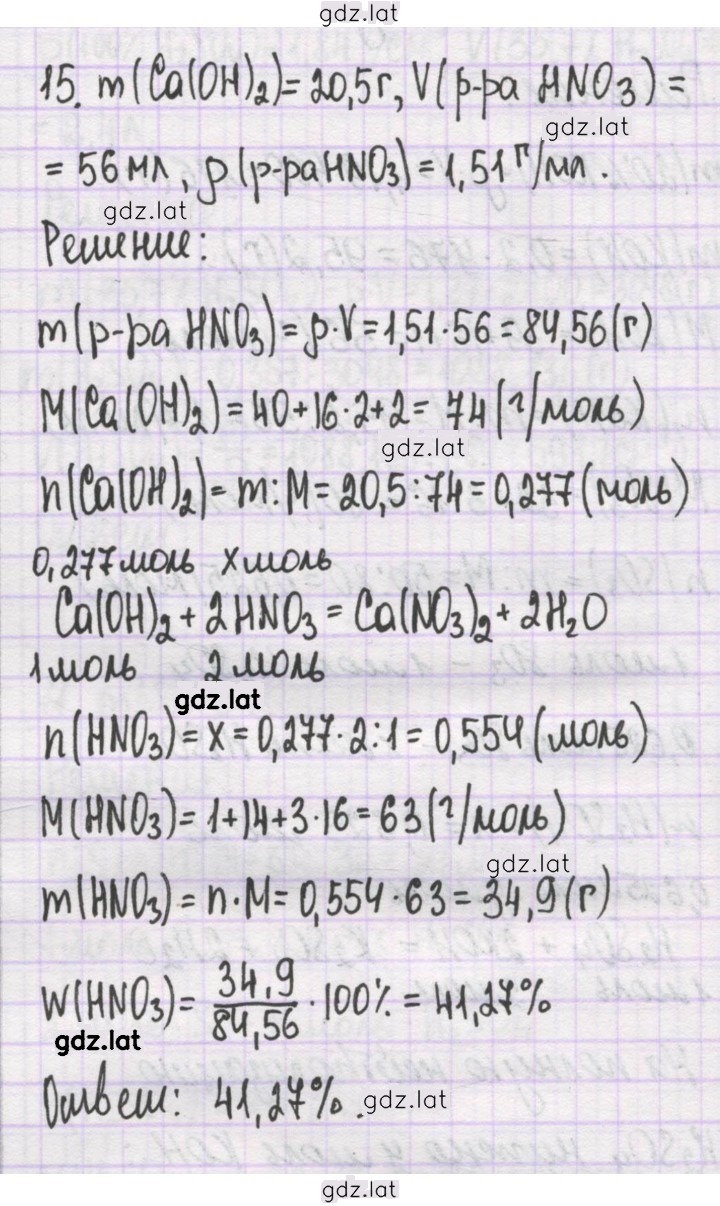 gdz.lat
15. m(Ca(OH)₂)=20,5г, V(р-ра HNO₃)=
gdz.lat
= 56 мл, ρ(р-ра HNO₃)=1,51 г/мл.
gdz.lat
Решение:
m(р-ра HNO₃)=ρ·V=1,51·56=84,56(г)
M(Ca(OH)₂)=40+16·2+2= 74(г/моль)
gdz.lat
n(Ca(OH)₂)=m:M=20,5:74=0,277(моль)
0,277моль х моль
Ca(OH)₂+2HNO₃=Ca(NO₃)₂+2H₂O
1 моль 2 моль
gdz.lat
n(HNO₃)=х=0,277·2:1=0,554(моль)
M(HNO₃)=1+14+3·16=63(г/моль)
gdz.lat
m(HNO₃)=n·M=0,554·63=34,9(г)
W(HNO₃)= 34,9/84,56 ·100% = 41,27%
gdz.lat
Ответ: 41,27%.
gdz.lat
gdz.lat